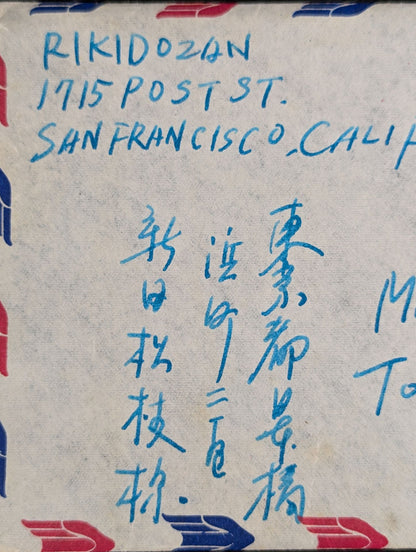 RIKIDOZAN
1715 POST ST.
SAN FRANCISCO, CALIF
東京都日本橋
浜町二丁目
新田松枝様.
To